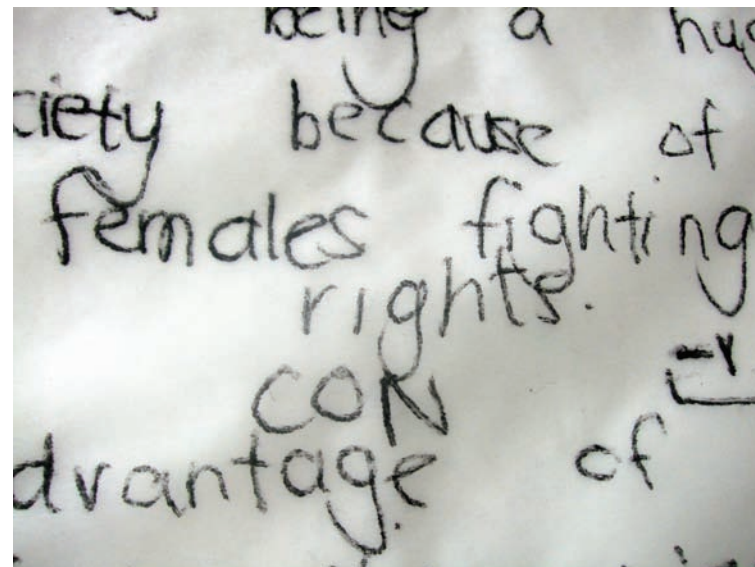 being a hug
ciety because of
females fighting
rights.
CON
dvantage of